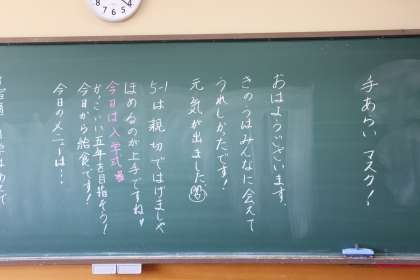 手あらい マスク!
おはようございます。
きのうはみんなに会えて
うれしかったです!
元気が出ました
5-1は親切ではげまし
ほめるのが上手ですね
今日は入学式
かっこいい五年生を目指そう!
今日から給食です!
今日のメニューは…